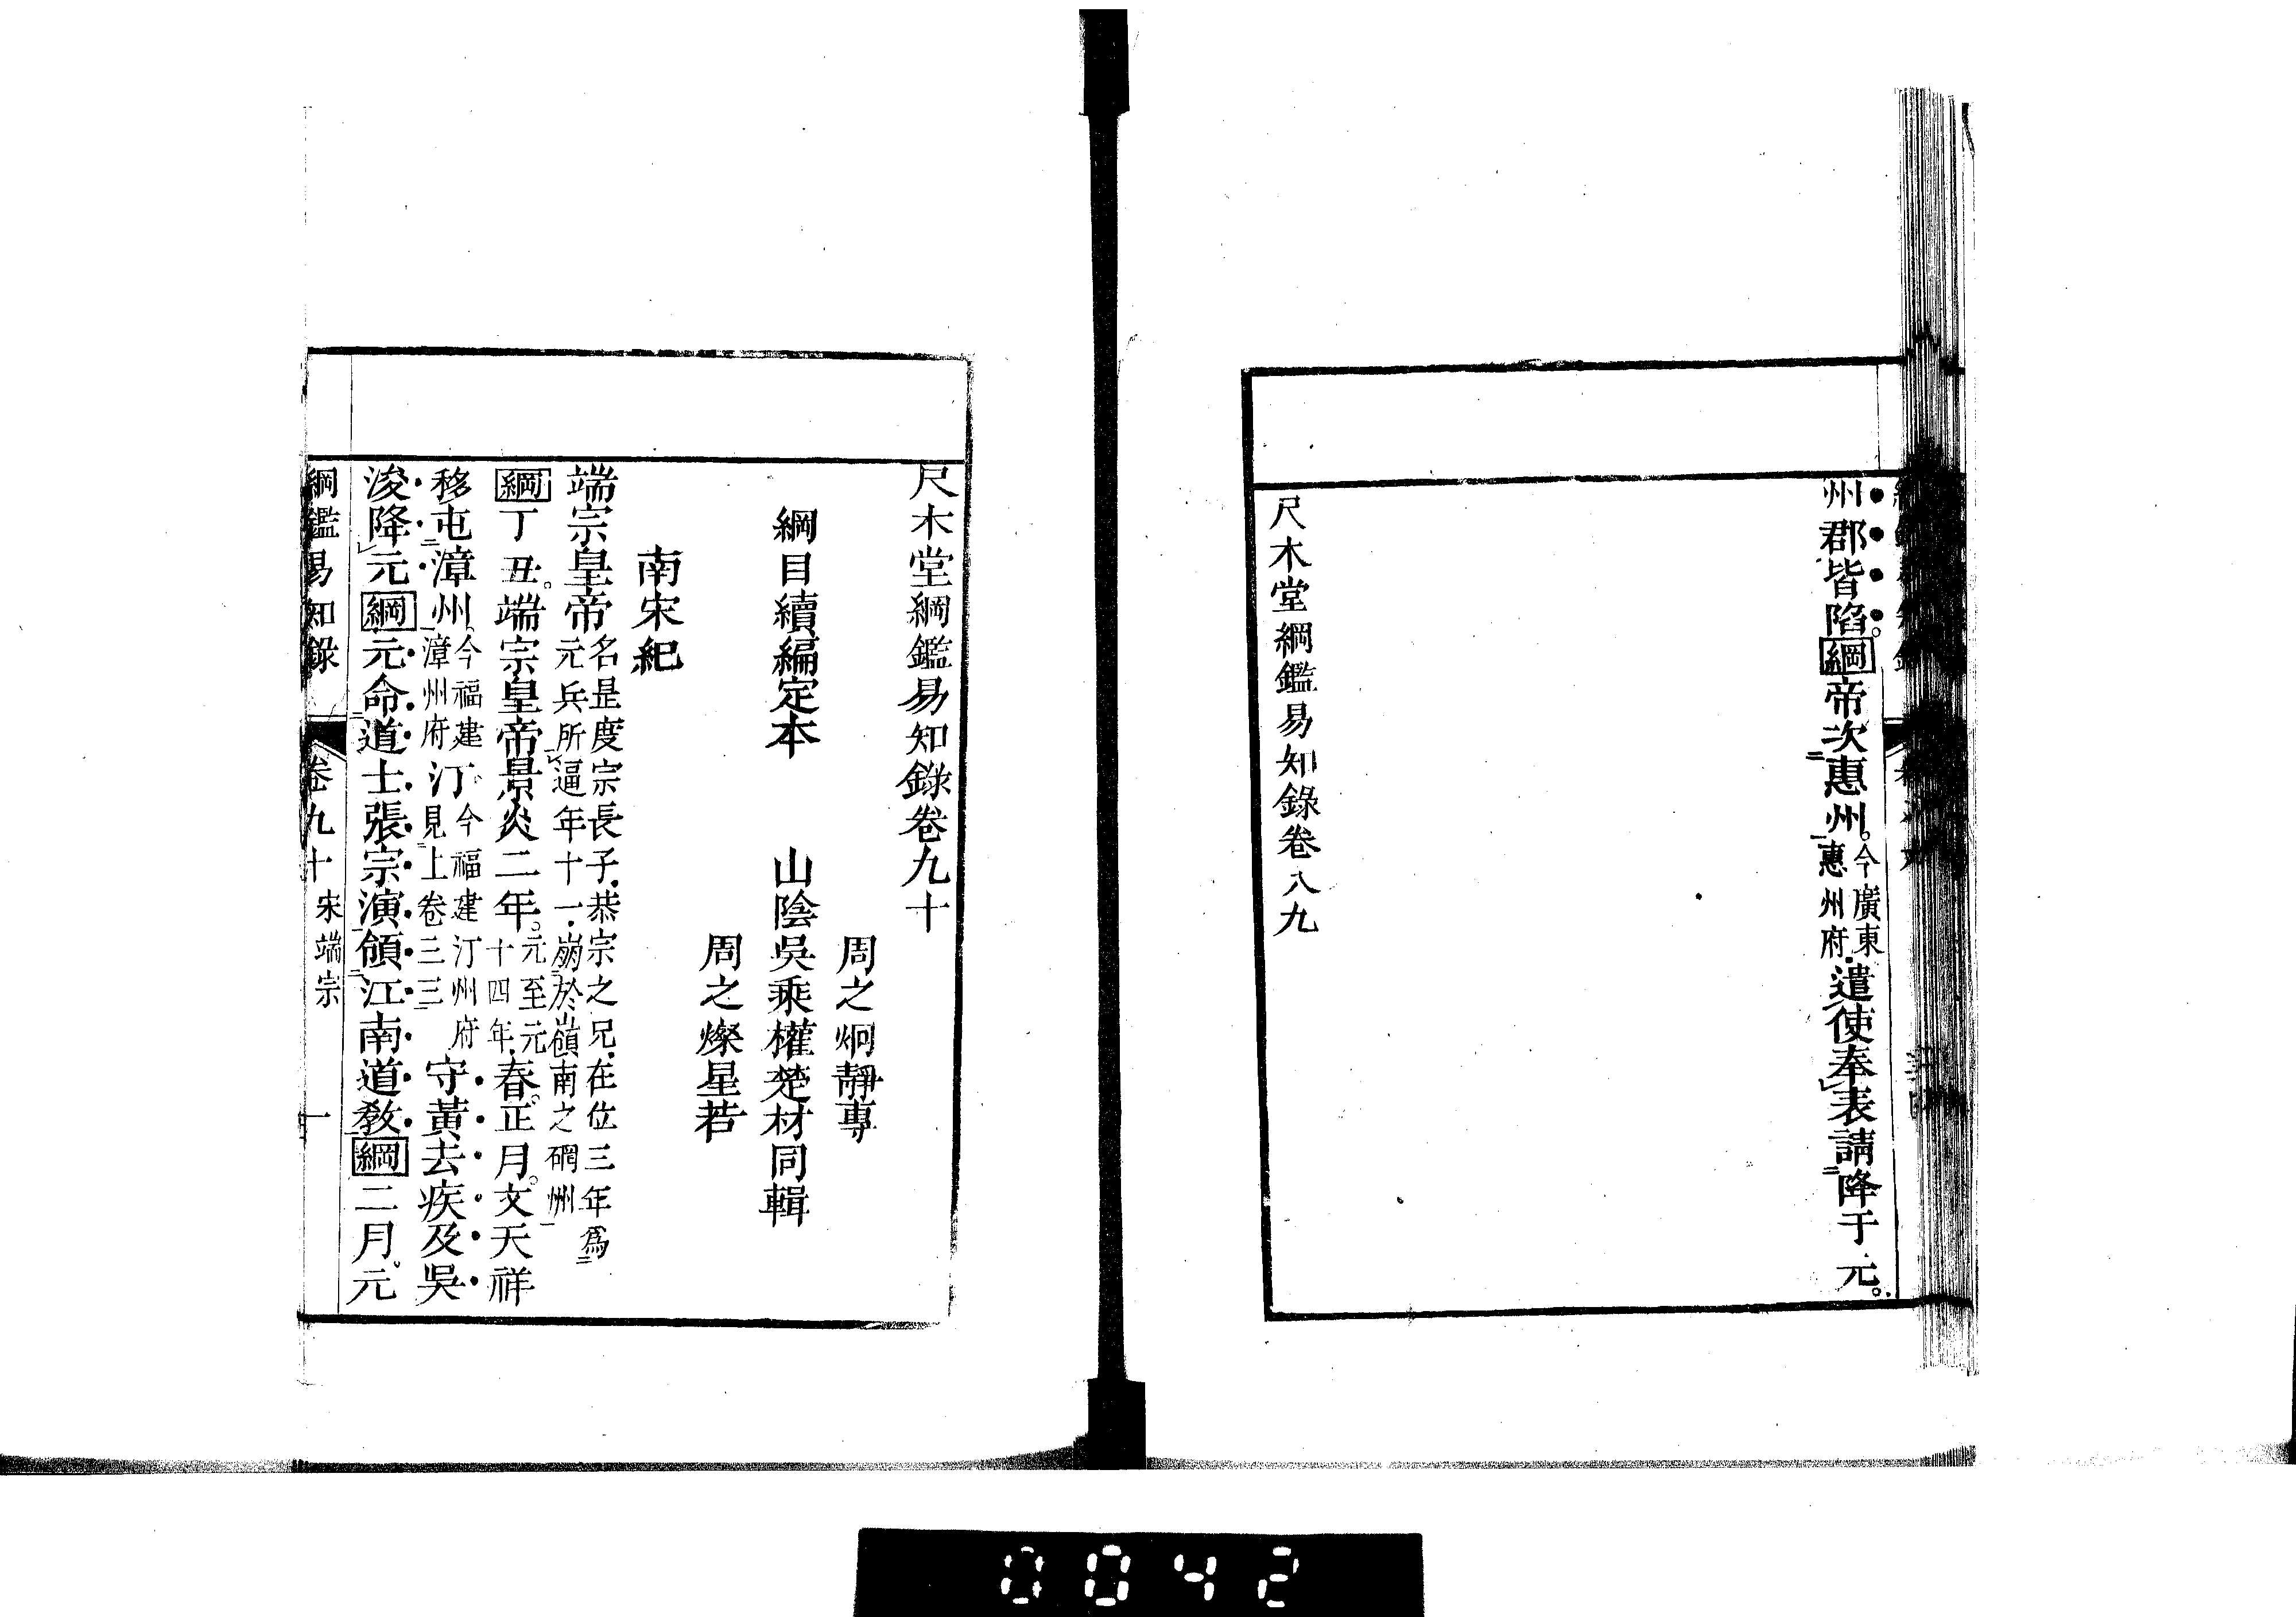 州郡皆陷。綱帝次惠州。今廣東惠州府。遣使奉表請降于元。
尺木堂綱鑑易知錄卷八九
尺木堂綱鑑易知錄卷九十
周之炯靜專
綱目續編定本 山陰吳乘權楚材同輯
周之燦星若
南宋紀
端宗皇帝名昰度宗長子恭宗之兄在位三年爲元兵所逼年十一崩於嶺南之碙州
綱丁丑。端宗皇帝景炎二年。元至元十四年春。正月。文天祥
移屯漳州。今福建漳州府汀。今福建汀州府見上卷三三守黃去疾及吳
浚降元綱元命道士張宗演領江南道教綱二月。元
綱鑑易知錄 卷九十 宋端宗 一
0042